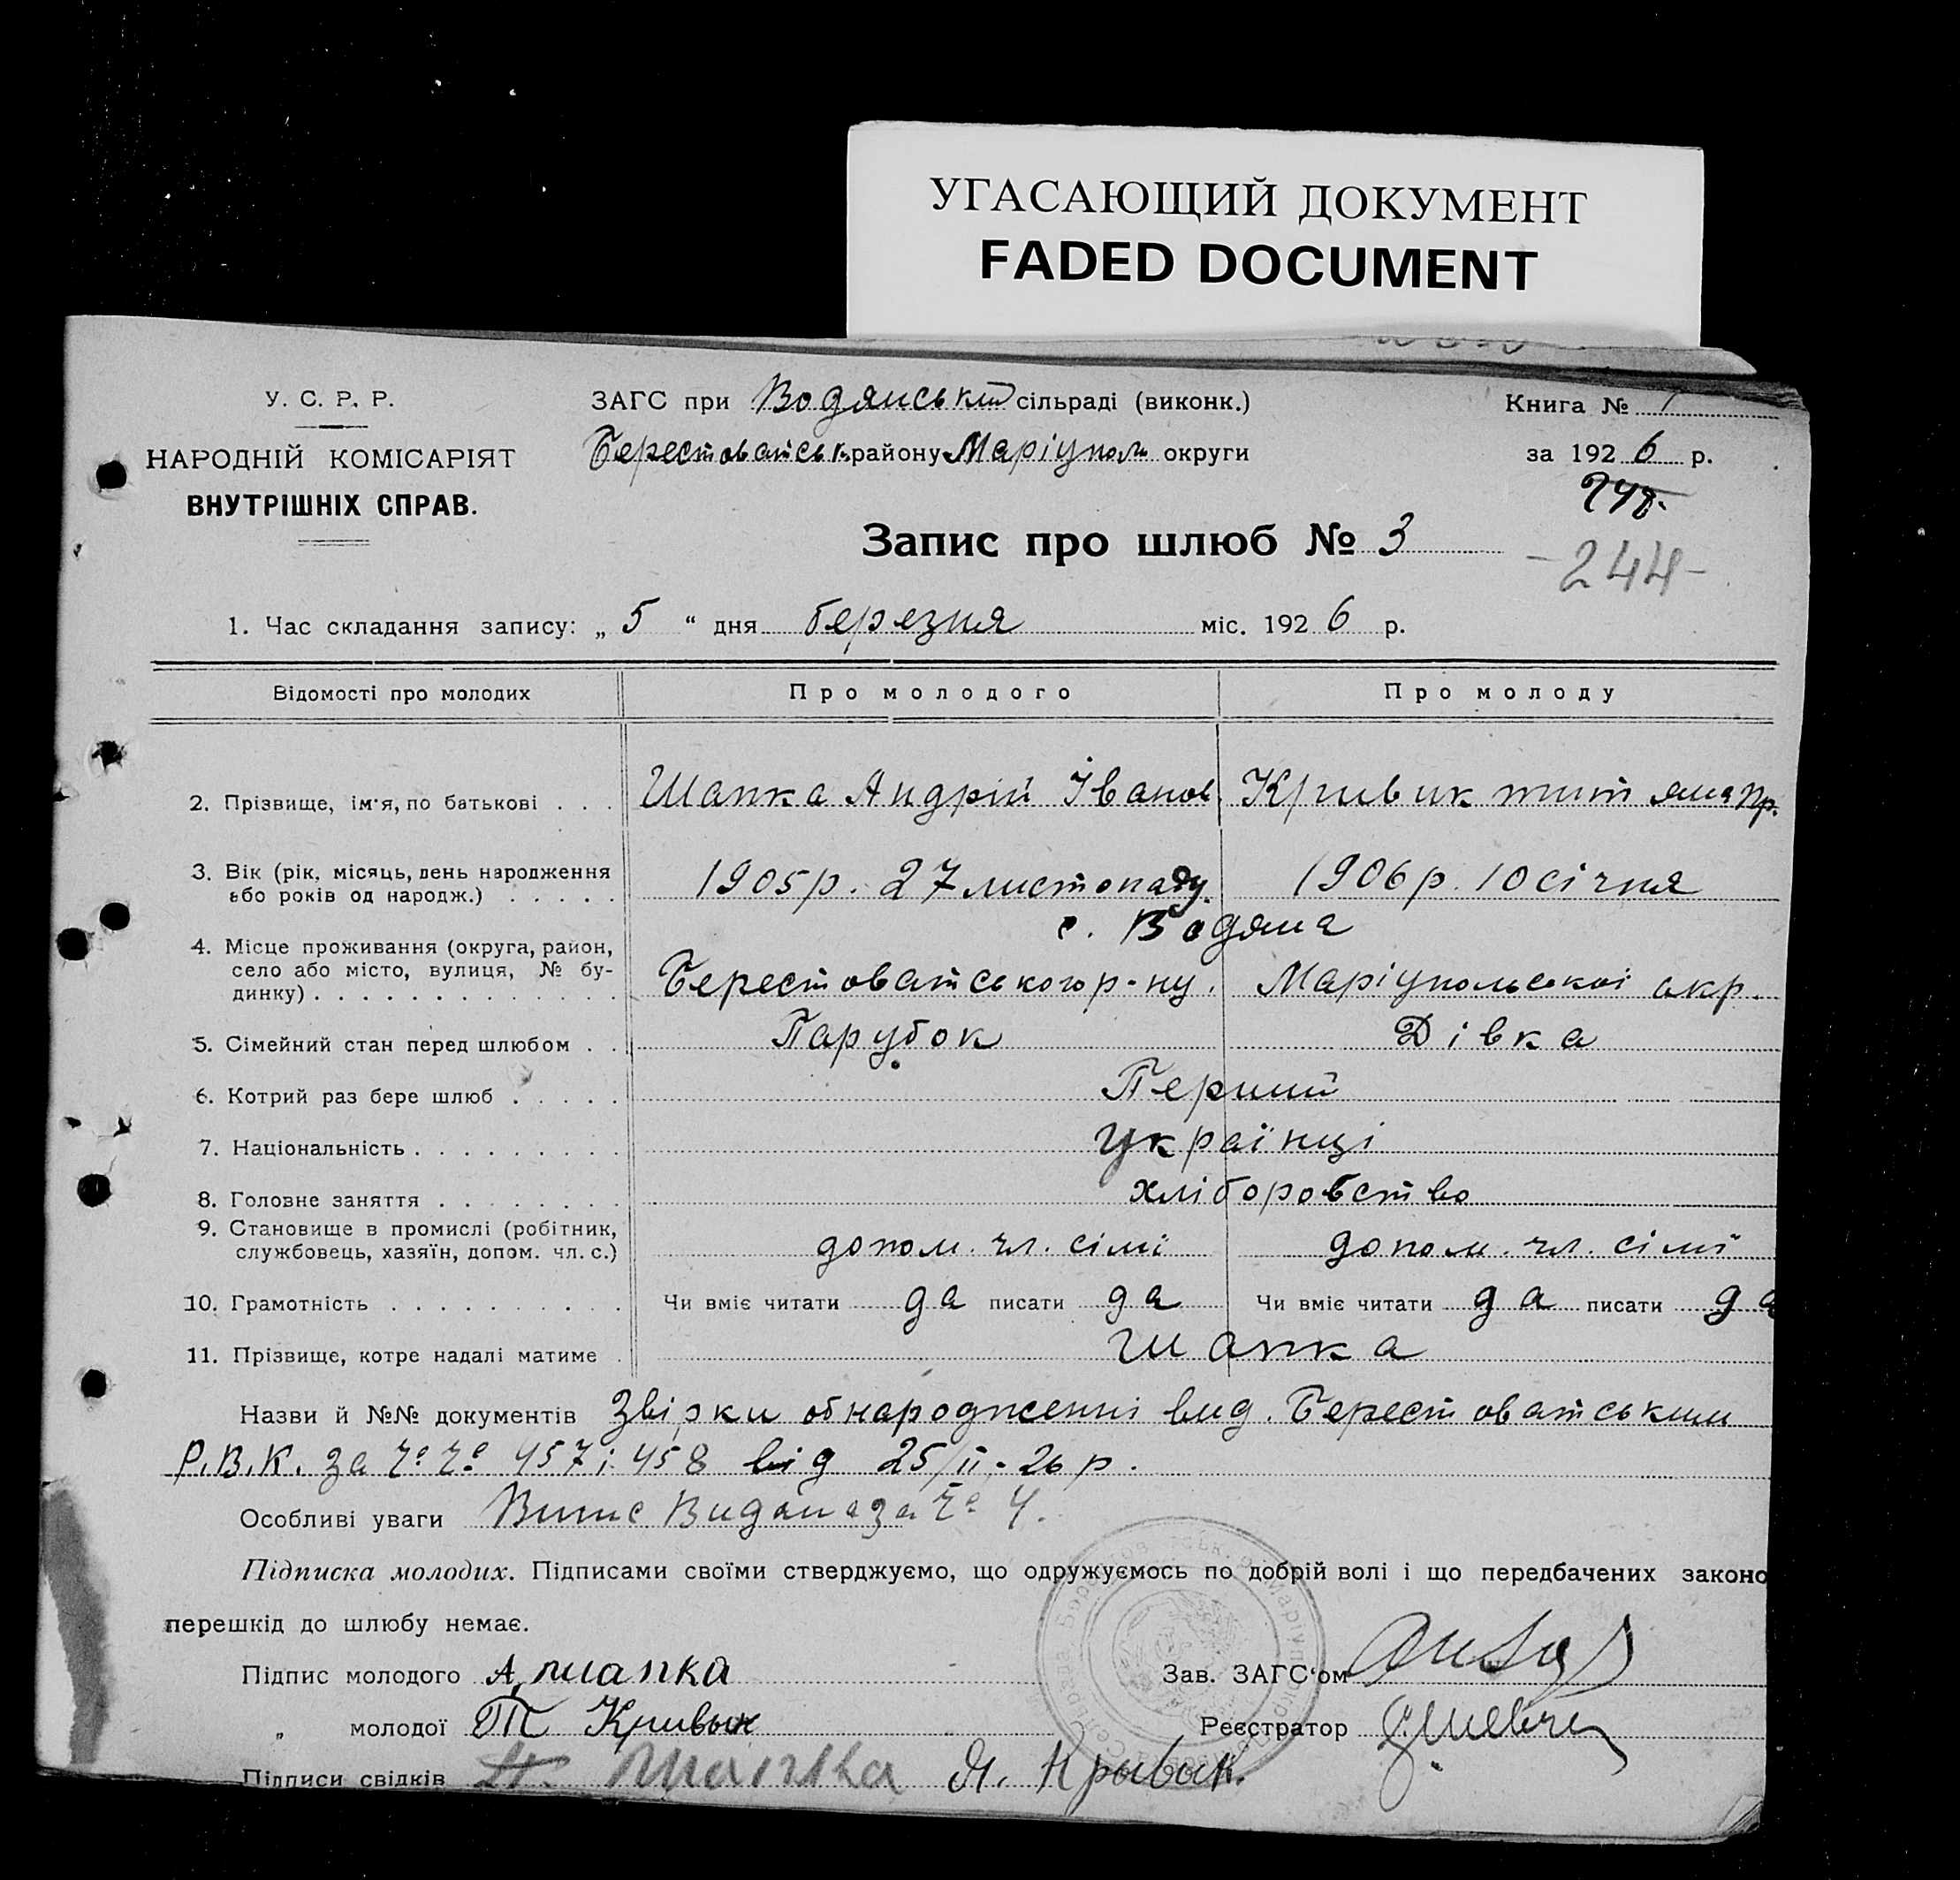 УГАСАЮЩИЙ ДОКУМЕНТ
FADED DOCUMENT
У. С. Р. Р.
НАРОДНІЙ КОМІСАРІЯТ
ВНУТРІШНІХ СПРАВ.
ЗАГС при Водянській сільраді (виконк.)
Берестоватськ. району Маріуполь округи
Книга № 1
за 1926 р.
244
Запис про шлюб № 3
-244-
1. Час складання запису: „ 5 “ дня березня міс. 1926 р.
Відомості про молодих Про молодого Про молоду
2. Прізвище, ім'я, по батькові . . . Шапка Андрій Іванов. Кривик тит яна Пр.
3. Вік (рік, місяць, день народження
або років од народж.) . . . . . 1905 р. 27 листопаду. 1906 р. 10 січня
с. Водяна
4. Місце проживання (округа, район,
село або місто, вулиця, № бу-
динку) . . . . . . . . . . . . . Берестоватського р-ну. Маріупольської окр.
5. Сімейний стан перед шлюбом . . Парубок Дівка
6. Котрий раз бере шлюб . . . . . Перший
7. Національність . . . . . . . . . Українці
8. Головне заняття . . . . . . . . хлiборобство
9. Становище в промислі (робітник,
службовець, хазяїн, допом. чл. с.) допом. чл. сімї допом. чл. сімї
10. Грамотність . . . . . . . . . . Чи вміє читати да писати да Чи вміє читати да писати да
11. Прізвище, котре надалі матиме . Шапка
Назви й №№ документів Звірки об народженні вид. Берестоватським
Р.В.К. за №№ 457 і 458 від 25/II-26 р.
Особливі уваги Випис Видана за № 4.
Підписка молодих. Підписами своїми стверджуємо, що одружуємось по добрій волі і що передбачених законо
перешкід до шлюбу немає.
Підпис молодого А. шапка Зав. ЗАГС'ом
„ молодої Т Кривык Реєстратор
Підписи свідків Шапка Я. Кривик.